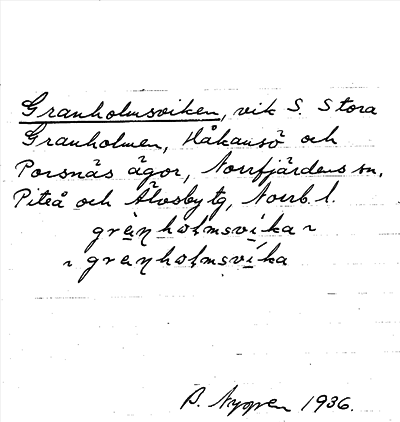 Granholmsviken, vik S. Stora
Granholmen, Håkansö och
Porsnäs ägor, Norrfjärdens sn,
Piteå och Älvsby tg, Norrb. l.
grànholmsvíka ~
~ granholmsvíka
B. Nygren 1936.